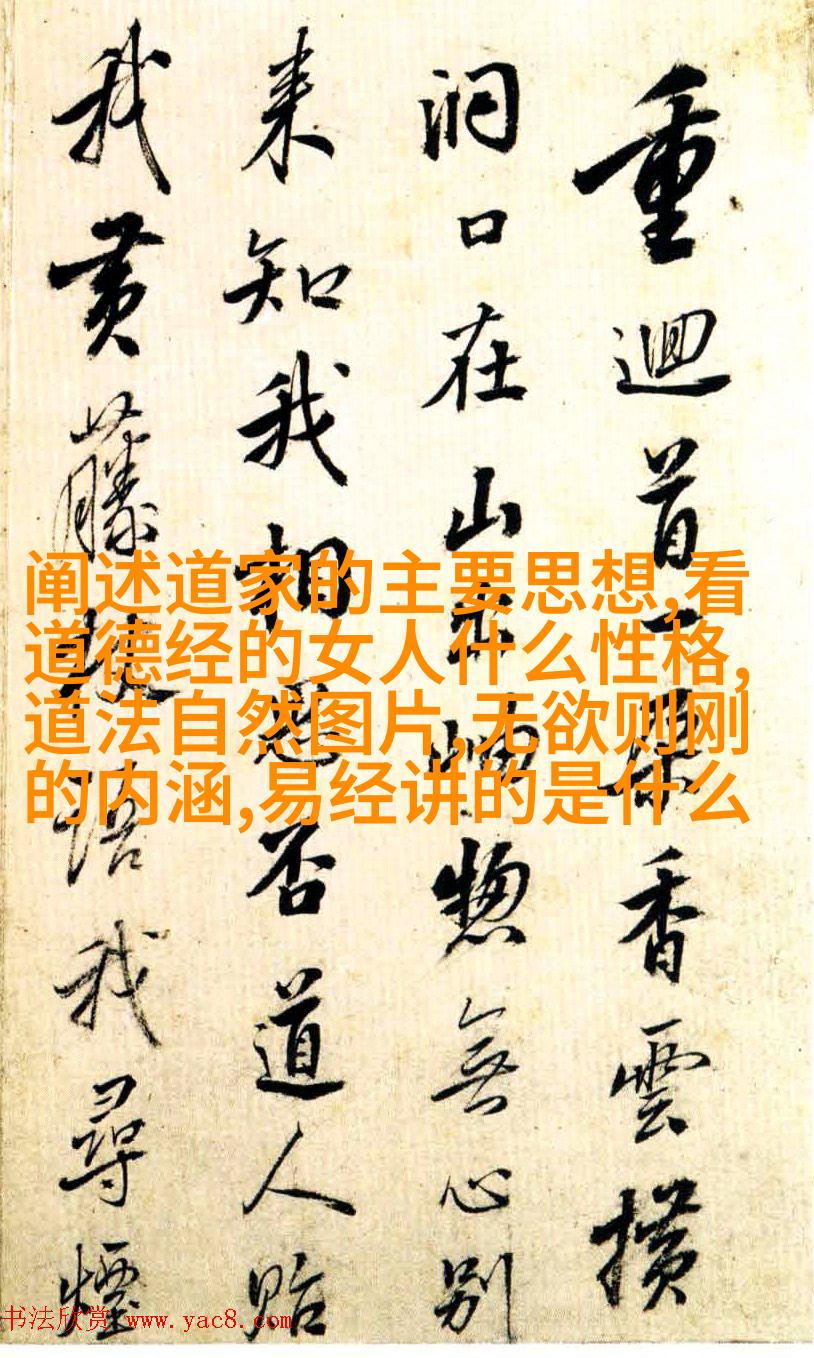 重迴首一香雲
洞口在山惣無心別
来知我相否道人貽
我黄藤我尋煙
阐述道家的主要思想,看
道德经的女人什么性格,
道法自然图片,无欲则刚
的内涵,易经讲的是什么
书法欣赏 www.yac8.com